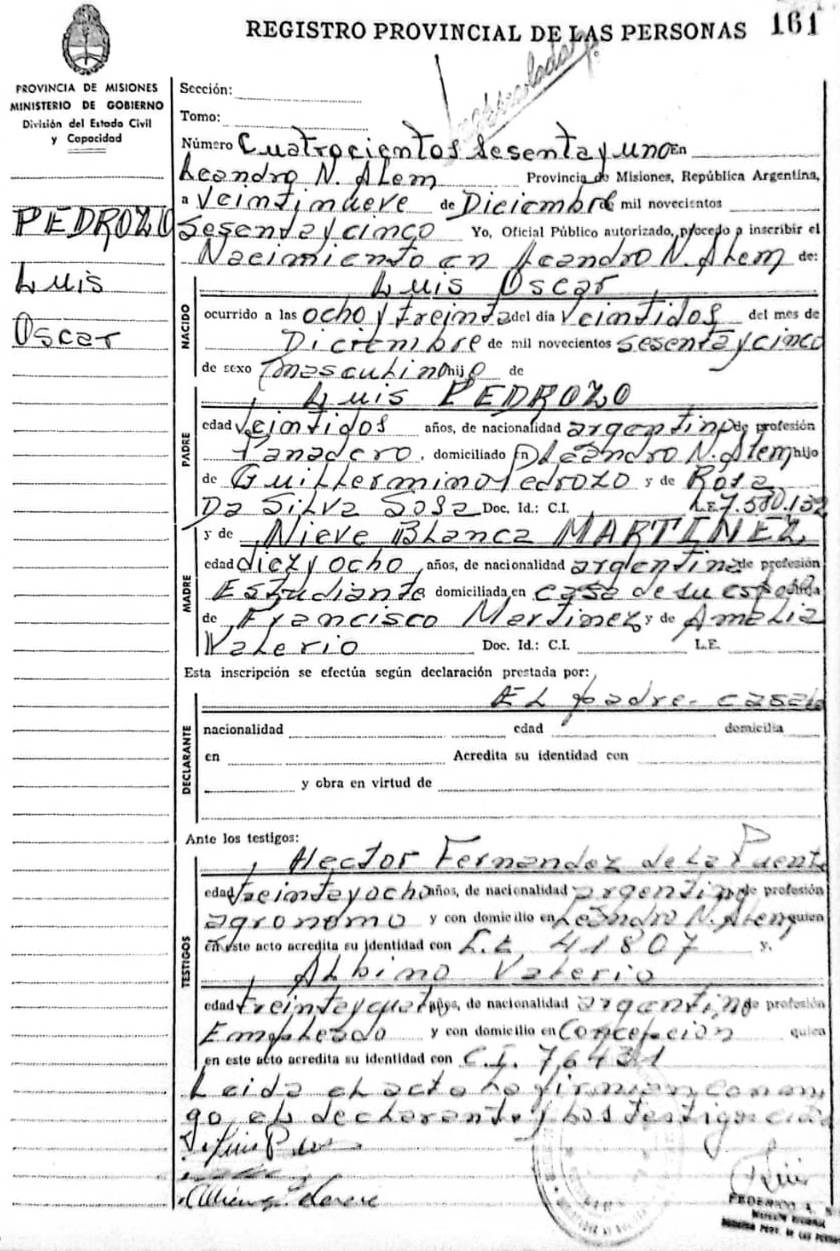 REGISTRO PROVINCIAL DE LAS PERSONAS 161
PROVINCIA DE MISIONES
MINISTERIO DE GOBIERNO
División del Estado Civil
y Capacidad
PEDROZO
Luis
Oscar
Sección:
Tomo:
Número Cuatrocientos sesenta y uno En
Leandro N. Alem Provincia de Misiones, República Argentina,
a Veintinueve de Diciembre mil novecientos
sesenta y cinco Yo, Oficial Público autorizado, procedo a inscribir el
Nacimiento en Leandro N. Alem de:
Luis Oscar
NACIDO
ocurrido a las ocho y treinta del día veintidos del mes de
Diciembre de mil novecientos sesenta y cinco
de sexo masculino hijo de
Luis PEDROZO
PADRE
edad veintidos años, de nacionalidad argentino de profesión
Panadero, domiciliado en Leandro N. Alem hijo
de Guillermino Pedrozo y de Rosa
Da Silva Sosa Doc. Id.: C.I. L.E. 7.580.132
y de Nieve Blanca MARTINEZ
MADRE
edad diez y ocho años, de nacionalidad argentina de profesión
Estudiante domiciliada en casa de su esposo hija
de Francisco Martinez y de Amalia
Valerio Doc. Id.: C.I. L.E.
Esta inscripción se efectúa según declaración prestada por:
El padre. casado
DECLARANTE
nacionalidad edad domicilia
en Acredita su identidad con
y obra en virtud de
Ante los testigos:
Hector Fernandez de la Puente
TESTIGOS
edad treinta y ocho años, de nacionalidad argentino de profesión
agronomo y con domicilio en Leandro N. Alem quien
en este acto acredita su identidad con L.E 41807 y.
Albino Valerio
edad treinta y cuatro años, de nacionalidad argentino de profesión
Empleado y con domicilio en Concepcion quien
en este acto acredita su identidad con C.I. 76431
Leida el acta la firman conmi
go el declarante y los testigos
FEDERICO A.